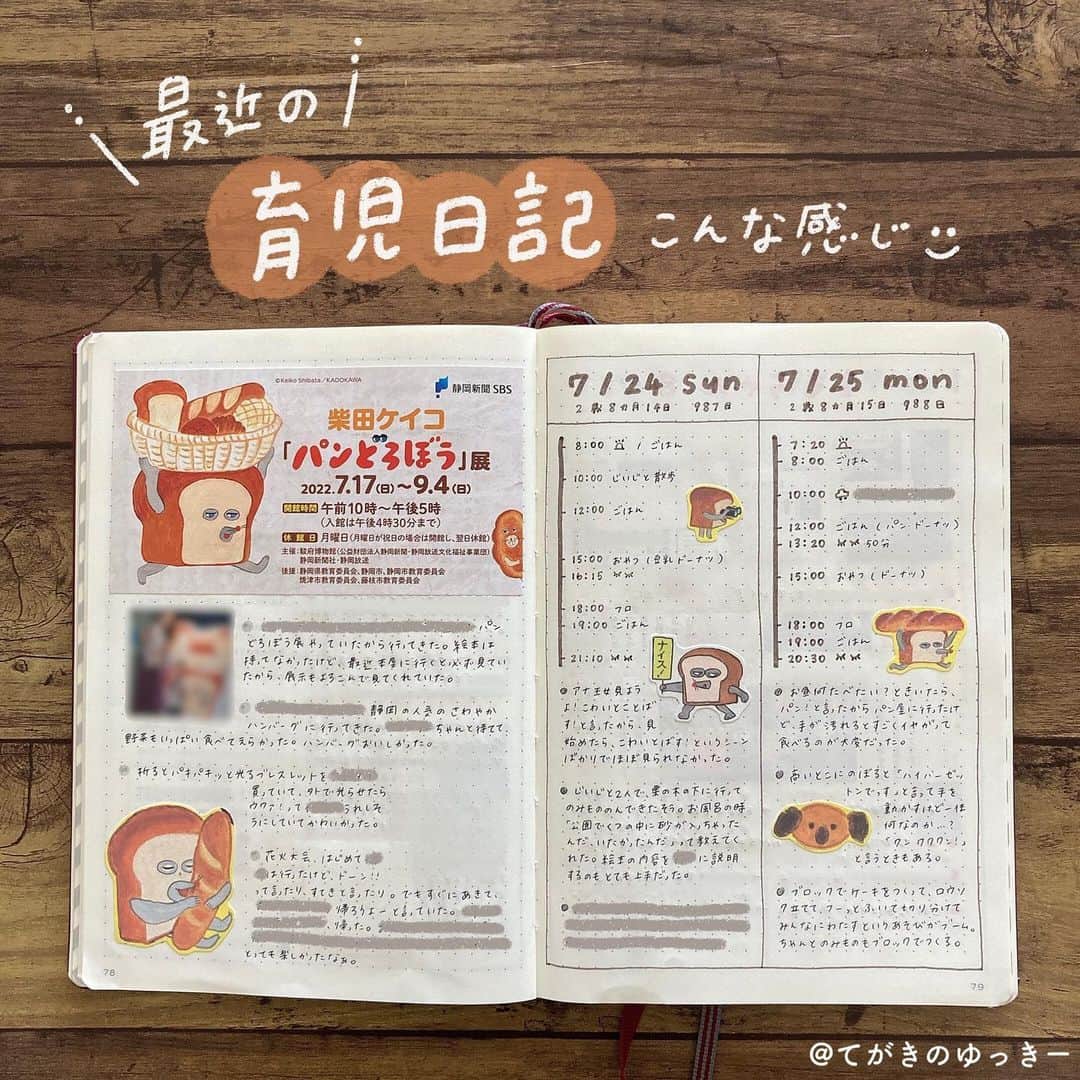 最近の
育児日記 こんな感じ
©Keiko Shibata/KADOKAWA
静岡新聞SBS
柴田ケイコ
「パンどろぼう」展
2022.7.17(日)〜9.4(日)
開館時間 午前10時〜午後5時
(入館は午後4時30分まで)
休館日 月曜日(月曜日が祝日の場合は開館し、翌日休館)
主催:駿府博物館(公益財団法人静岡新聞・静岡放送文化福祉事業団)
静岡新聞社・静岡放送
後援:静岡県教育委員会、静岡市、静岡市教育委員会
焼津市教育委員会、藤枝市教育委員会
パン
どろぼう展やっていたから行ってきた。絵本は
持ってなかったけど、最近本屋に行くと必ず見てい
たから、展示もよろこんで見てくれていた。
静岡の人気のさわやか
ハンバーグに行ってきた。ちゃんと待てて、
野菜もいっぱい食べてえらかった。ハンバーグおいしかった。
折るとパキパキッと光るブレスレットを
買っていて、外で光らせたら
ウワァ!ってうれしそ
うにしていてかわいかった。
花火大会、はじめて
は行ったけど、ドーン!!
って言ったり、すてきと言ったり。でもすぐにあきて、
帰ろうよーと言っていた。
、帰った。
とっても楽しかったなぁ。
78
7/24 sun
2歳8カ月14日 987日
8:00 / ごはん
10:00 じいじと散歩
12:00 ごはん
15:00 おやつ(豆乳ドーナツ)
16:15
18:00 フロ
19:00 ごはん
21:10
ナイス!
アナ王女見よう
よ!こわいとことば
す!と言ったから、見
始めたら、こわいとばす!というシーン
ばかりでほぼ見られなかった。
じいじと2人で、栗の木の下に行って
のみもののんできたそう。お風呂の時
「公園でくつの中に砂が入っちゃった
んだ、いたかったんだ」って教えてく
れた。絵本の内容をに説明
するのもとても上手だった。
7/25 mon
2歳8カ月15日 988日
7:20
8:00 ごはん
10:00
12:00 ごはん(パン・ドーナツ)
13:20 50分
15:00 おやつ(ドーナツ)
18:00 フロ
19:00 ごはん
20:30
お昼何たべたい?ときいたら、
パン!と言ったからパン屋に行ったけ
ど、手が汚れるとすごくイヤがって
食べるのが大変だった。
高いとこにのぼると「ハイパーゼッ
トンでっす」と言って手を
動かすけど一体
何なのか…?
「クンククワン!」
と言うときもある。
ブロックでケーキをつくって、ロウソ
ク立てて、フーっとふいて切り分けて
みんなにわたすというあそびがブーム。
ちゃんとのみものもブロックでつくる。
79
@てがきのゆっきー